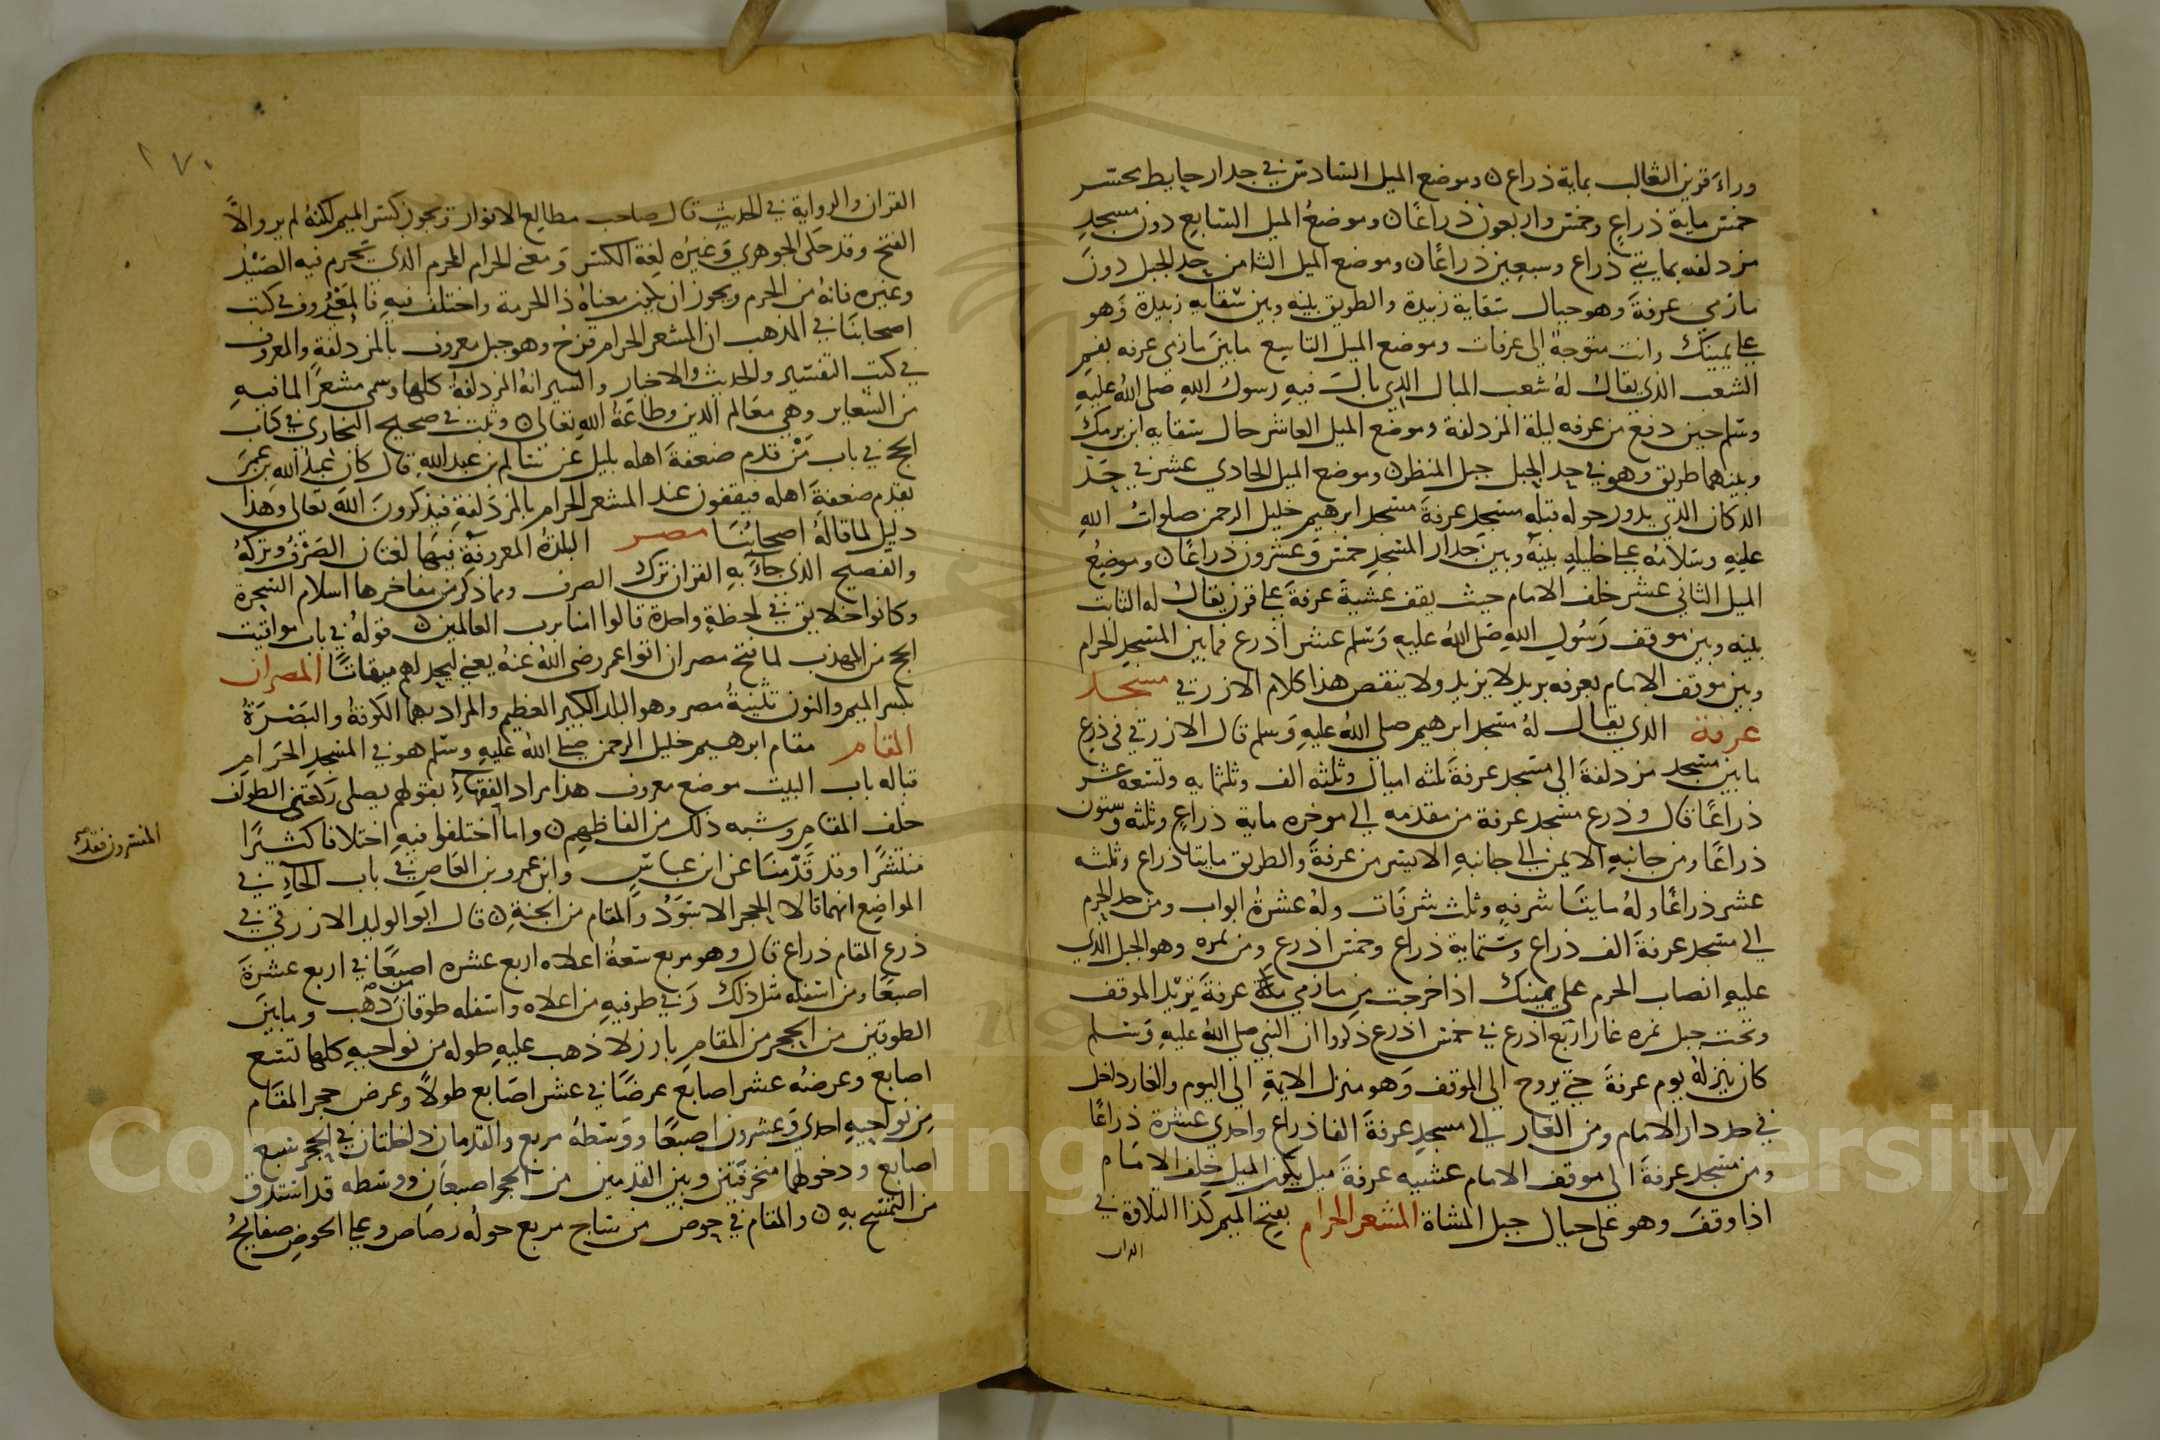 وراء قرين الثعالب بماية ذراع ن وموضع الميل السادس في جدار حايط محسر
خمس ماية ذراع وخمس واربعون ذراعًا ن وموضعُ الميل السابع دون مسجدِ
مزدلفه بمايتي ذراع وسبعين ذراعًا ن وموضع الميل الثامن حد الجبل دون
مازمى عرفةَ وهو حيال سقاية زبيدة والطريق بينه وبين سقايه زبيدة وَهو
على يمينك وانت متوجهٌ الى عرفات وموضع الميل التاسع مابين مازمى عرفه بفمِ
الشعب الذي يقال لهُ شعب المبال الذي بال فيه رسول الله صلى الله عليهِ
وسلم حين دفع من عرفه ليلة المزدلفة وموضع الميل العاشر حال سقايه ابن برمك
وبينهما طريق وهو في حد الجبل جبل المنظر ن وموضع الميل الحادي عشر في حَد
الدكان الذي يدور حوله قبله مسجد عرفة مسجد ابرهيم خليل الرحمن صلوات اللهِ
عليهِ وسلامُه على خليلهِ بينهُ وبين جدار المسجد خمس وَعشرون ذراعًا ن وموضِعُ
الميل الثاني عشر خلف الامام حيث يقف عشية عرفةَ على قرن يقال له النابت
بينه وبين موقف رَسُول اللهِ صَلى اللهُ عليهِ وَسَلم عشر اذرع فما بين المسجدِ الحرام
وبين موقف الامام بعرفه بريد لا يزيد ولا ينقص هذا كلام الازرقي مسجد
عرفة الذي يقال لهُ مسجد ابرهيم صلى اللهُ عليهِ وَسلم قال الازرقي في ذرع
ما بين مسجد مزدلفة الى مسجد عرفةَ ثلثه اميال وثلثه الف وثلثمايه وتسعه عشر
ذراعًا قال وذرع مسجد عرفة من مقدمه الى موخره ماية ذراعٍ وثلثه وستون
ذراعًا ومن جانبهِ الايمن الى جانبهِ الايسر من عرفةَ والطريق مايتا ذراع وثلثه
عشر ذراعًا ولهُ مايتَا شرفهٍ وثلث شرفات ولهُ عشرةُ ابواب ومن حد الحرم
الى مسجد عرفةَ الف ذراع وستماية ذراع وخمس اذرع ومن نمره وهو الجبل الذي
عليهِ انصاب الحرم على يمينك اذا خرجت من مازمي عرفةَ تريد الموقف
وتحت جبل نمره غار اربع اذرع في خمس اذرع ذكروا ان النبي صلى اللهُ عليهِ وَسَلم
كان ينزلهُ يوم عرفةَ حتى يروح الى الموقف وَهو منزل الايمةِ الى اليوم والغار داخل
في جدار دار الامام ومن الغار الى مسجد عرفةَ الفا ذراعٍ واحدى عشرة ذراعًا
ومن مسجد عرفةَ الى موقف الامام عشيه عرفةَ ميل يكون الميل خلف الامام
اذا وقفَ وهو على حيال جبل المشاة المشعر الحرام بفتح الميم كذا التلاوة في
القران
١٧٠
القران والرواية في الحديثِ قال صاحب مطالع الانوار ويجوز كسر الميم لكنهُ لم يرو الاَّ
الفتح وقد حَكى الجوهري وَغيرُه لغة الكسر وَمعنى الحرام المحرم الذي يَحرم فيه الصَيْد
وغيره فانهُ من الحرم ويجوز ان يكون معناهُ ذا الحرمة واختلف فيهِ فالمعْرُوف في كتب
اصحابنَا في المذهب ان المشعر الحرام قزح وهو جبل معروف بالمزدلفةِ والمعروف
في كتب التفسير والحديث والاخبار والسير انهُ المزدلفةُ كلها وسمى مشعرًا لما فيهِ
من الشعاير وهي معَالم الدين وطاعَةُ اللهِ تعالى ن وثبت في صحيح البخاري في كتاب
الحج في باب مَنْ قدم ضعفةَ اهله بليل عن سَالم بن عبد اللهِ قال كان عبد الله بن عمرَ
يقدم ضعفةَ اهله فيقفون عند المشعر الحرام بالمزدلفةِ فيذكرونَ اللهَ تعالى وهذا
دليل لما قالهُ اصحابُنَا مصر البلدةُ المعروفةُ فيهَا لغتان الصَرْفُ وتركُهُ
والفصيح الذي جاءَ بهِ القران ترك الصرف ومما ذكر من مفاخرها اسلام السحرة
وكانوا خلايق في لحظةٍ واحدة قالوا امنا برب العالمين ن قولهُ في باب مواقيت
الحج من المهذب لما فتح مصران اتوا عمر رضى اللهُ عنهُ يعنى ليحد لهم ميقاتًا المصران
بكسر الميم والنون تثنيةُ مصر وهو البلد الكبير العظيم والمراد بهما الكوفةُ والبَصْرَةُ
المقام مقام ابرهيم خليل الرحمن صلى اللهُ عليهِ وسلم هو في المسجدِ الحَرامِ
قباله باب البيت موضع معروف هذا مراد الفقهاءِ بقولهم يصلى رَكعتي الطواف
خلف المقامِ وشبه ذلك من الفاظهم ن واما اختلفوا فيه اختلافا كثيرًا
منتشرًا وقد قَدَّمنَا عن ابن عباسٍ وابن عمرو بن العَاص في باب الحاءِ في
المواضِع انهما قالا الحجر الاسوَدُ والمقام من الجنةِ ن قال ابو الوليد الازرقي في
ذرع المقام ذراع قال وهو مربع سَعةُ اعلاه اربع عشره اصبعًا في اربع عشرةَ
اصبعًا ومن اسفله مثل ذلك وَفي طرفيهِ من اعلاه واسفله طوقان من ذهب ومابين
الطوقين من الحجر من المقام بارز لا ذهب عليهِ طوله من نواحيهِ كلها تسع
اصابع وعرضُه عشر اصابع عرضًا في عشر اصَابع طولاً وعرض حجر المقام
من نواحيهِ احدى وَعشرون اصبعًا ووَسَطهُ مربع والقدمان داخلتان في الحجر سَبع
اصابع ودخولهما منحرفَتين وبين القدمين من الحجر اصبعَانِ ووسَطه قد استدق
من التمسح بهِ ن والمقام في حوض من ساج مربع حولُه رصاص وعلى الحوض صفايحُ
المفسرون فقد